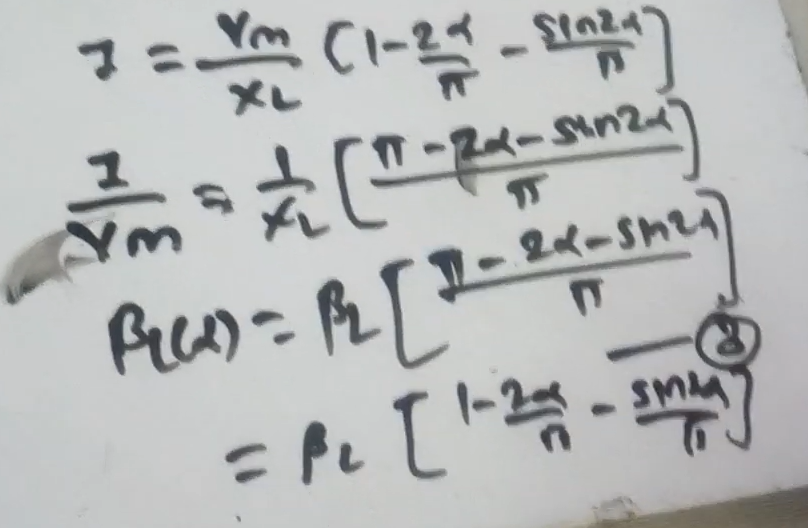 I = Vm/XL (1 - 2α/π - sin2α/π]
I/Vm = 1/XL [π - 2α - sin2α/π]
BL(α) = BL [π - 2α - sin2α/π]
= BL [1 - 2α/π - sin2α/π]